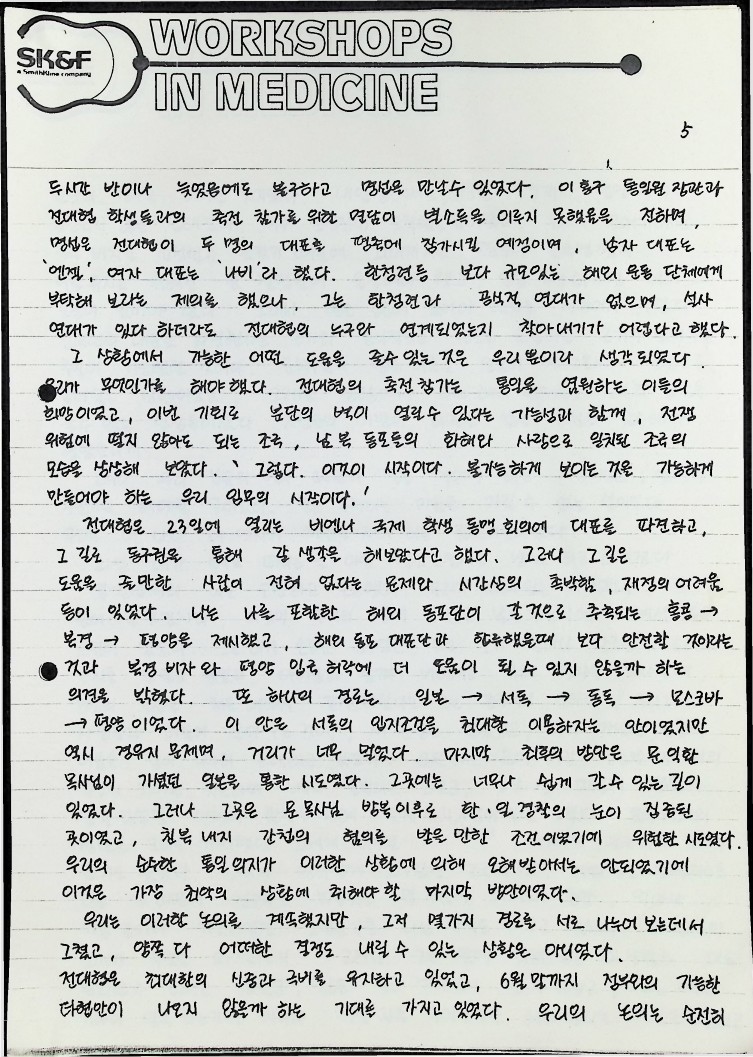 SK&F
a SmithKline company
WORKSHOPS
IN MEDICINE
5
두시간 반이나 늦었음에도 불구하고 명선을 만날수 있었다. 이 홍구 통일원 장관과
전대협 학생들과의 축전 참가를 위한 면담이 별소득을 이루지 못했음을 전하며,
명선은 전대협이 두 명의 대표를 평축에 참가시킬 예정이며, 남자 대표는
'엔젤', 여자 대표는 '나비'라 했다. 한청련등 보다 규모있는 해외 운동 단체에게
부탁해 보라는 제의를 했으나, 그는 한청련과 공식적 연대가 없으며, 설사
연대가 있다 하더라도 전대협의 누구와 연계되었는지 찾아내기가 어렵다고 했다.
그 상황에서 가능한 어떤 도움을 줄수 있는 것은 우리 뿐이라 생각 되었다.
우리가 무엇인가를 해야 했다. 전대협의 축전 참가는 통일을 염원하는 이들의
희망이었고, 이번 기회로 분단의 벽이 열릴수 있다는 가능성과 함께, 전쟁
위험에 떨지 않아도 되는 조국, 남북 동포들의 화해와 사랑으로 일치된 조국의
모습을 상상해 보았다. '그렇다. 이것이 시작이다. 불가능하게 보이는 것을 가능하게
만들어야 하는 우리 임무의 시작이다.'
전대협은 23일에 열리는 비엔나 국제 학생 동맹 회의에 대표를 파견하고,
그 길로 동구권을 통해 갈 생각을 해보았다고 했다. 그러나 그 길은
도움을 줄만한 사람이 전혀 없다는 문제와 시간상의 촉박함, 재정의 어려움
등이 있었다. 나는 나를 포함한 해외 동포단이 갈 것으로 추측되는 홍콩 →
북경 → 평양을 제시했고, 해외 동포 대표단과 합류했을때 보다 안전할 것이라는
것과 북경 비자와 평양 입국 허락에 더 도움이 될 수 있지 않을까 하는
의견을 밝혔다. 또 하나의 경로는 일본 → 서독 → 동독 → 모스코바
→ 평양 이었다. 이 안은 서독의 입지조건을 최대한 이용하자는 안이었지만
역시 경유지 문제며, 거리가 너무 멀었다. 마지막 최후의 방안은 문익환
목사님이 가셨던 일본을 통한 시도였다. 그곳에는 너무나 쉽게 갈수 있는 길이
있었다. 그러나 그곳은 문 목사님 방북이후로 한.일 경찰의 눈이 집중된
곳이었고, 친북 내지 간첩의 혐의를 받을 만한 조건이었기에 위험한 시도였다.
우리의 순수한 통일 의지가 이러한 상황에 의해 오해받아서는 안되었기에
이것은 가장 최악의 상황에 취해야 할 마지막 방안이었다.
우리는 이러한 논의를 계속했지만, 그저 몇가지 경로를 서로 나누어 보는데서
그쳤고, 양쪽 다 어떠한 결정도 내릴 수 있는 상황은 아니었다.
전대협은 최대한의 신중과 극비를 유지하고 있었고, 6월 말까지 정부와의 가능한
타협안이 나오지 않을까 하는 기대를 가지고 있었다. 우리의 논의는 순전히